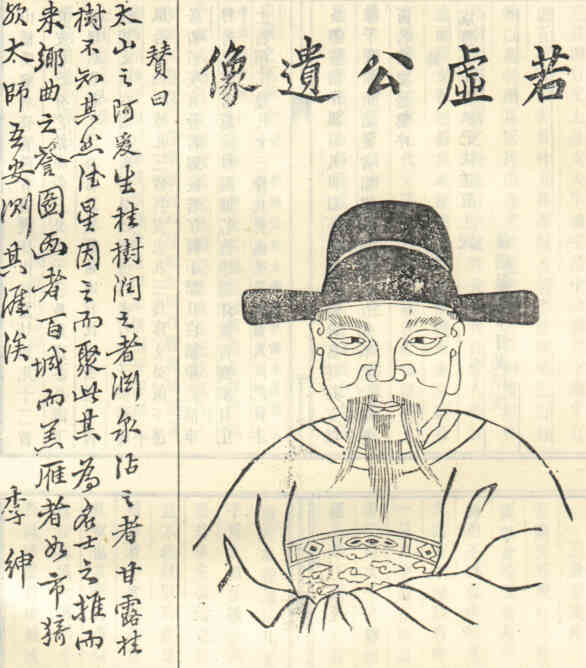 若虛公遺像
贊曰
太山之阿爰生桂樹潤之者淵泉沾之者甘露桂
樹不知其然德星因之而聚此其為名士之推而
來鄉曲之譽圖画者百城而羔雁者如市猗
歟太師吾安測其涯涘 李紳